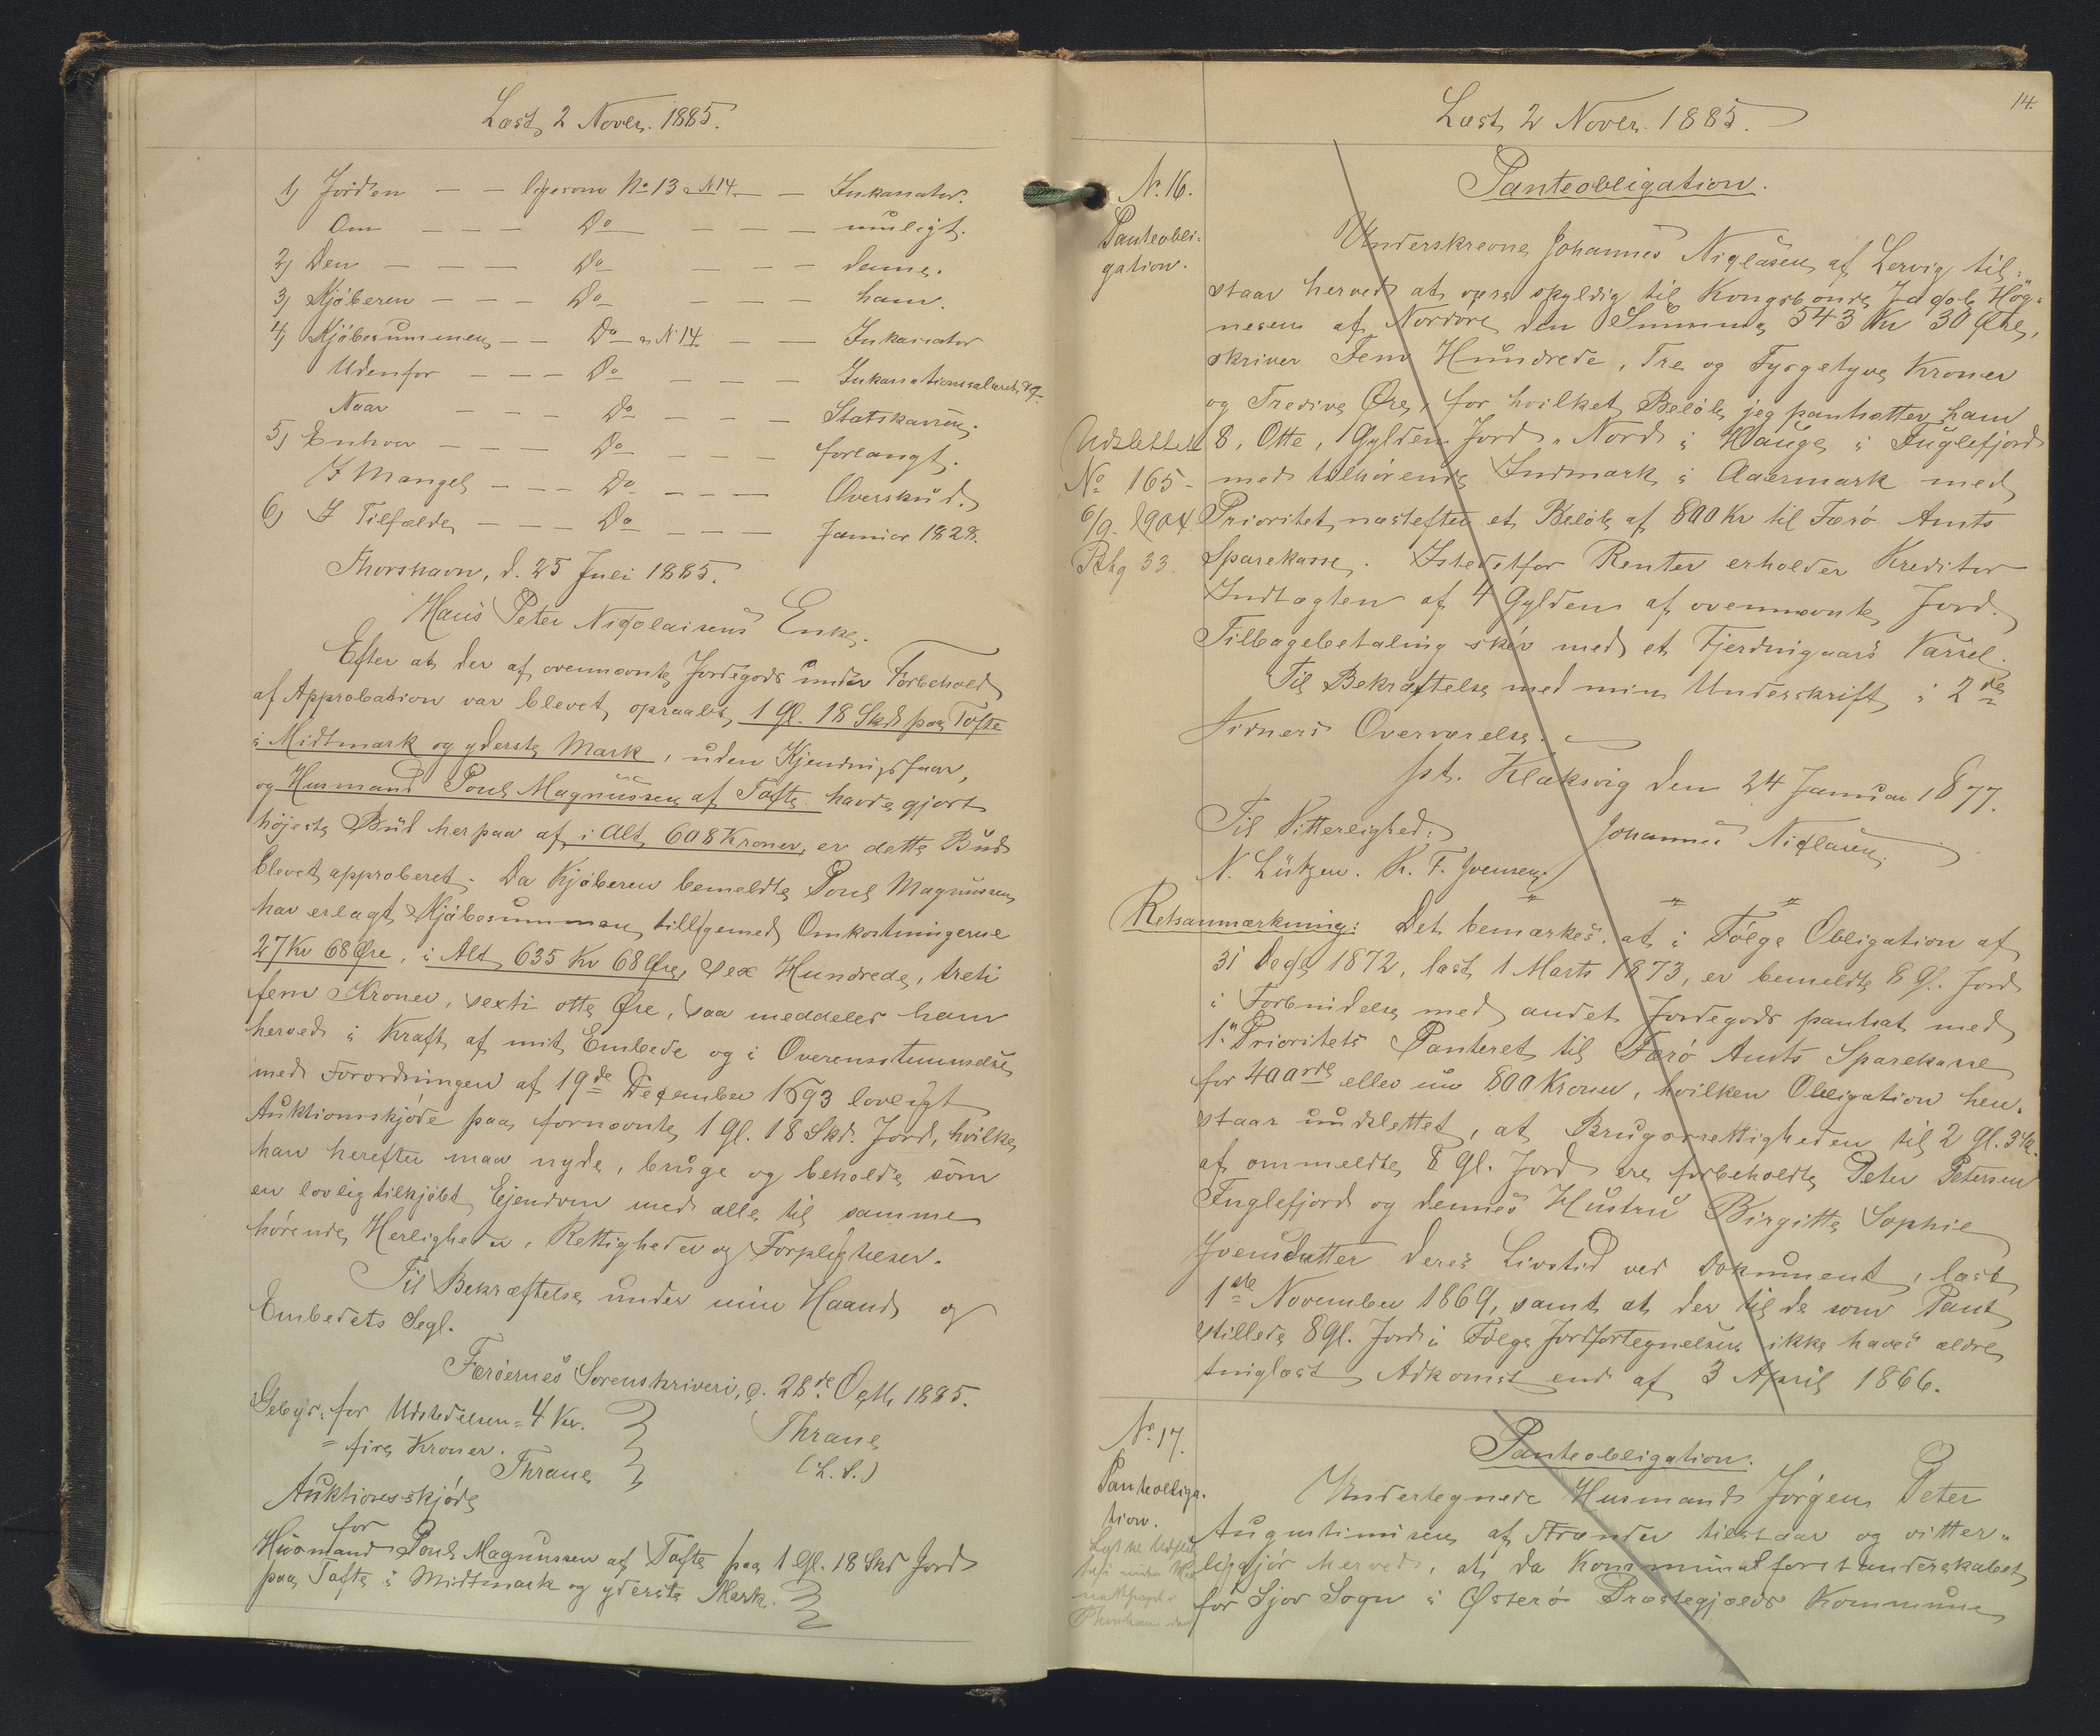 Læst, 2 Novbr. 1885.
1) Jorden — — ligesom No 13 & N 14. — — Inkassator.
Om — — — Do — — — muligt.
2) Den — — — Do — — — denne.
3) Kjöberen — — — Do — — — ham.
4) Kjöbesummen, — — Do & N 14. — — Inkassator
Udenfor — — — Do — — — Inkassationssalair
Naar — — — Do — — — Statskassen.
5) Enhver — — — Do — — — forlangt.
I Mangel — — — Do — — — Overskud.
6) I Tilfælde — — — Do — — — Januar 1828.
Thorshavn, d. 25 Juli 1885.
Hans Peter Nicolaisens Enke.
Efter at der af ovennævnte Jordegods under Forbehold
af Approbation var blevet opraabt, 1 Gl. 18 Skd paa Tofte
i Midtmark og yderste Mark, uden Kjendingsfaar,
og Husmand Poul Magnussen af Tofte havde gjort
höjeste Bud herpaa af i Alt, 608 Kroner, er dette Bud
blevet approberet. Da Kjöberen bemeldte Poul Magnussen
har erlagt Kjöbesummen tilligemed Omkostningerne
27 Kr 68 Øre, i Alt, 635 Kr 68 Øre, sex Hundrede, treti
fem Kroner, sexti otte Øre, saa meddeles ham
herved i Kraft af mit Embede og i Overensstemmelse
med Forordningen af 19de December 1693 lovligt
Auktionsskjöde paa fornævnte 1 Gl. 18 Skd. Jord, hvilke
han herefter maa nyde, bruge og beholde som
en lovlig tilkjöbt Ejendom med alle til samme
hörende Herligheder, Rettigheder og Forpligtelser.
Til Bekræftelse under min Haand og
Embedets Segl.
Færöernes Sorenskriveri, d. 28de Octb. 1885.
Gebyr for Udstedelsen = 4 Kr.
= fire Kroner.
Thrane
Thrane
(L. S.)
Auktionsskjöde
for
Husmand Poul Magnussen af Tofte paa 1 Gl. 18 Skd Jord
paa Tofte i Midtmark og yderste Mark.
14.
Læst, 2 Novbr. 1885.
No. 16.
Panteobli-
gation.
Panteobligation.
Underskrevne Johannes Niclasen af Lervig til-
staar herved at være skyldig til Kongsbonde Jacob Hög-
nesen af Nordöre den Summa 543 Kr 30 Øre,
skriver Fem Hundrede, Tre og Fyrgetyve Kroner
og Tredive Øre, for hvilket Belöb jeg pantsætter ham
8, Otte, Gylden Jord Nord i Hauge i Fuglefjord
med tilhörende Indmark i Aaermark med
Prioritet næstefter et Belöb af 800 Kr til Færö Amts
Sparekasse. Istedetfor Renter erholder Kreditor
Indtægten af 4 Gylden af ovennævnte Jord.
Tilbagebetaling skér med et Fjerdingaars Varsel.
Til Bekræftelse med min Underskrift i 2de
Vidners Overværelse.
Udslettet
No 165 -
6/9. 1904.
Rbg 33.
pt. Klaksvig den 24 Januar 1877.
Til Vitterlighed:
Johannes Niclasen.
N. Lützen. K. F. Joensen.
Retsanmærkning: Det bemærkes, at i Fölge Obligation af
31 Decb 1872, læst 1 Marts 1873, er bemeldte 8 Gl. Jord
i Forbindelse med andet Jordegods pantsat med
1. Prioritets Panteret til Færö Amts Sparekasse
for 400 rd eller nu 800 Kroner, hvilken Obligation hen-
staar uudslettet, at Brugsrettigheden til 2 Gl. 3 Sk.
af ommeldte 8 Gl. Jord ere forbeholdte Peter Petersen
Fuglefjord og dennes Hustru Birgitte Sophie
Joensdatter deres Livstid ved Dokument, læst
1ste November 1869, samt at der til de som Pant
stillede 8 Gl. Jord i Fölge Jordfortegnelsen ikke haves ældre
tinglæst Adkomst end af 3 April 1866.
No. 17.
Panteobliga-
tion.
Panteobligation.
Undertegnede Husmand Jörgen Peter
Augustinussen af Strænder tilstaar og vitter-
liggjör herved, at, da Kommunalforstanderskabet
for Sjov Sogn i Österö Præstegjælds Kommune